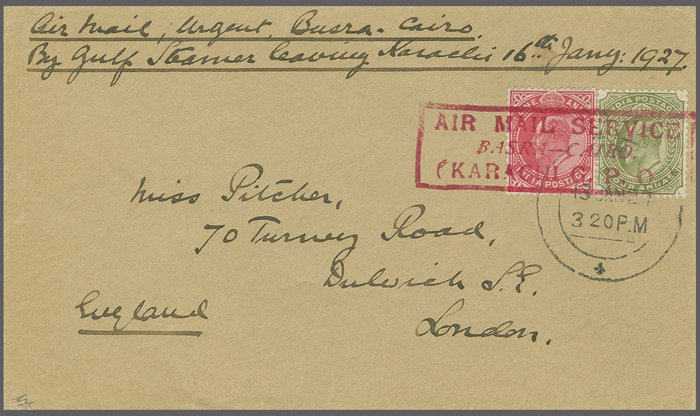 Air Mail, Urgent, Busra - Cairo.
By Gulf Steamer leaving Karachi 16th Jany: 1927.
AIR MAIL SERVICE
BASRA—CAIRO.
(KARACHI G.P.O.
INDIA POSTAGE
3 20 P.M
Miss Pitcher,
70 Turney Road,
Dulwich S.E.
London.
England